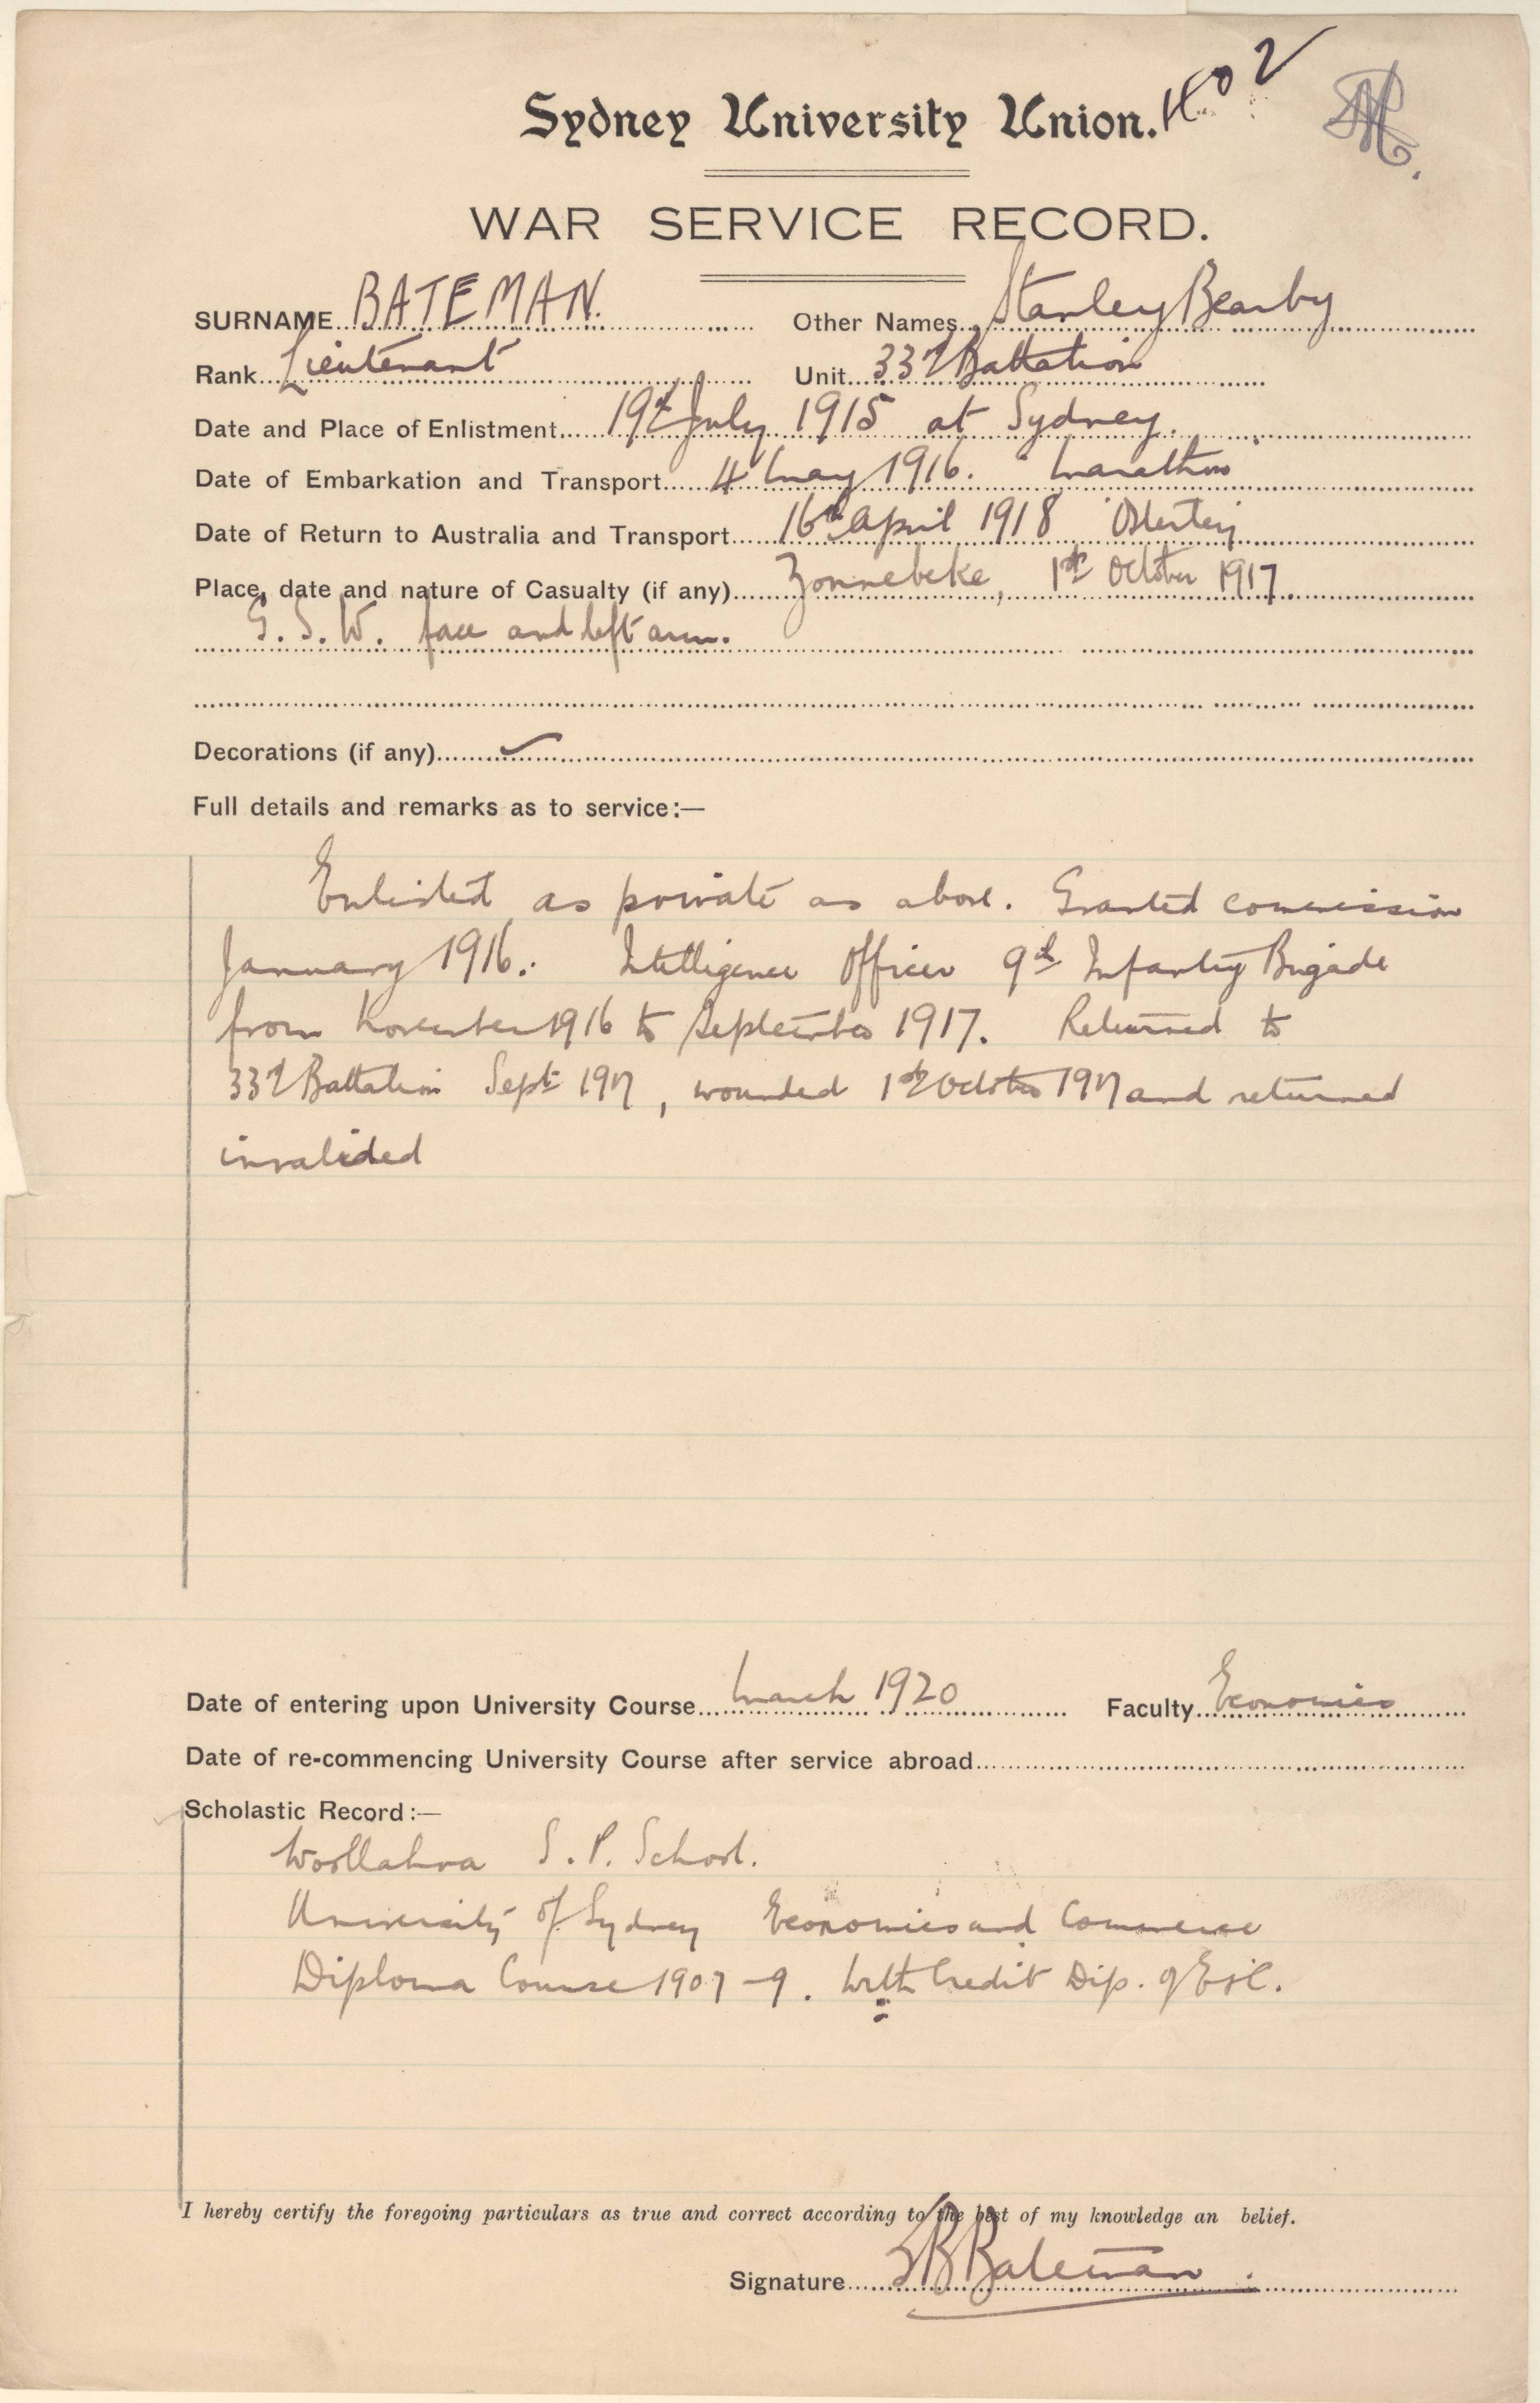 Sydney University Union.
WAR SERVICE RECORD.
SURNAME BATEMAN. Other Names Stanley Bearby
Rank Lieutenant Unit 33rd Battalion
Date and Place of Enlistment 19th July 1915 at Sydney.
Date of Embarkation and Transport 4th May 1916. "Marathon"
Date of Return to Australia and Transport 16th April 1918
Place, date and nature of Casualty (if any) Zonnebeke, 1st October 1917.
G.S.W. face and left arm.
Decorations (if any)
Full details and remarks as to service:—
Enlisted as private as above. Granted commission
January 1916. Intelligence Officer 9th Infantry Brigade
from November 1916 to September 1917. Returned to
33rd Battalion Sept 1917, wounded 1st October 1917 and returned
invalided
Date of entering upon University Course March 1920 Faculty Economics
Date of re-commencing University Course after service abroad
Scholastic Record:—
Woollahra S.P. School.
University of Sydney Economics and Commerce
Diploma Course 1907-9. With Credit Dip. of E & C.
I hereby certify the foregoing particulars as true and correct according to the best of my knowledge an belief.
Signature SB Bateman